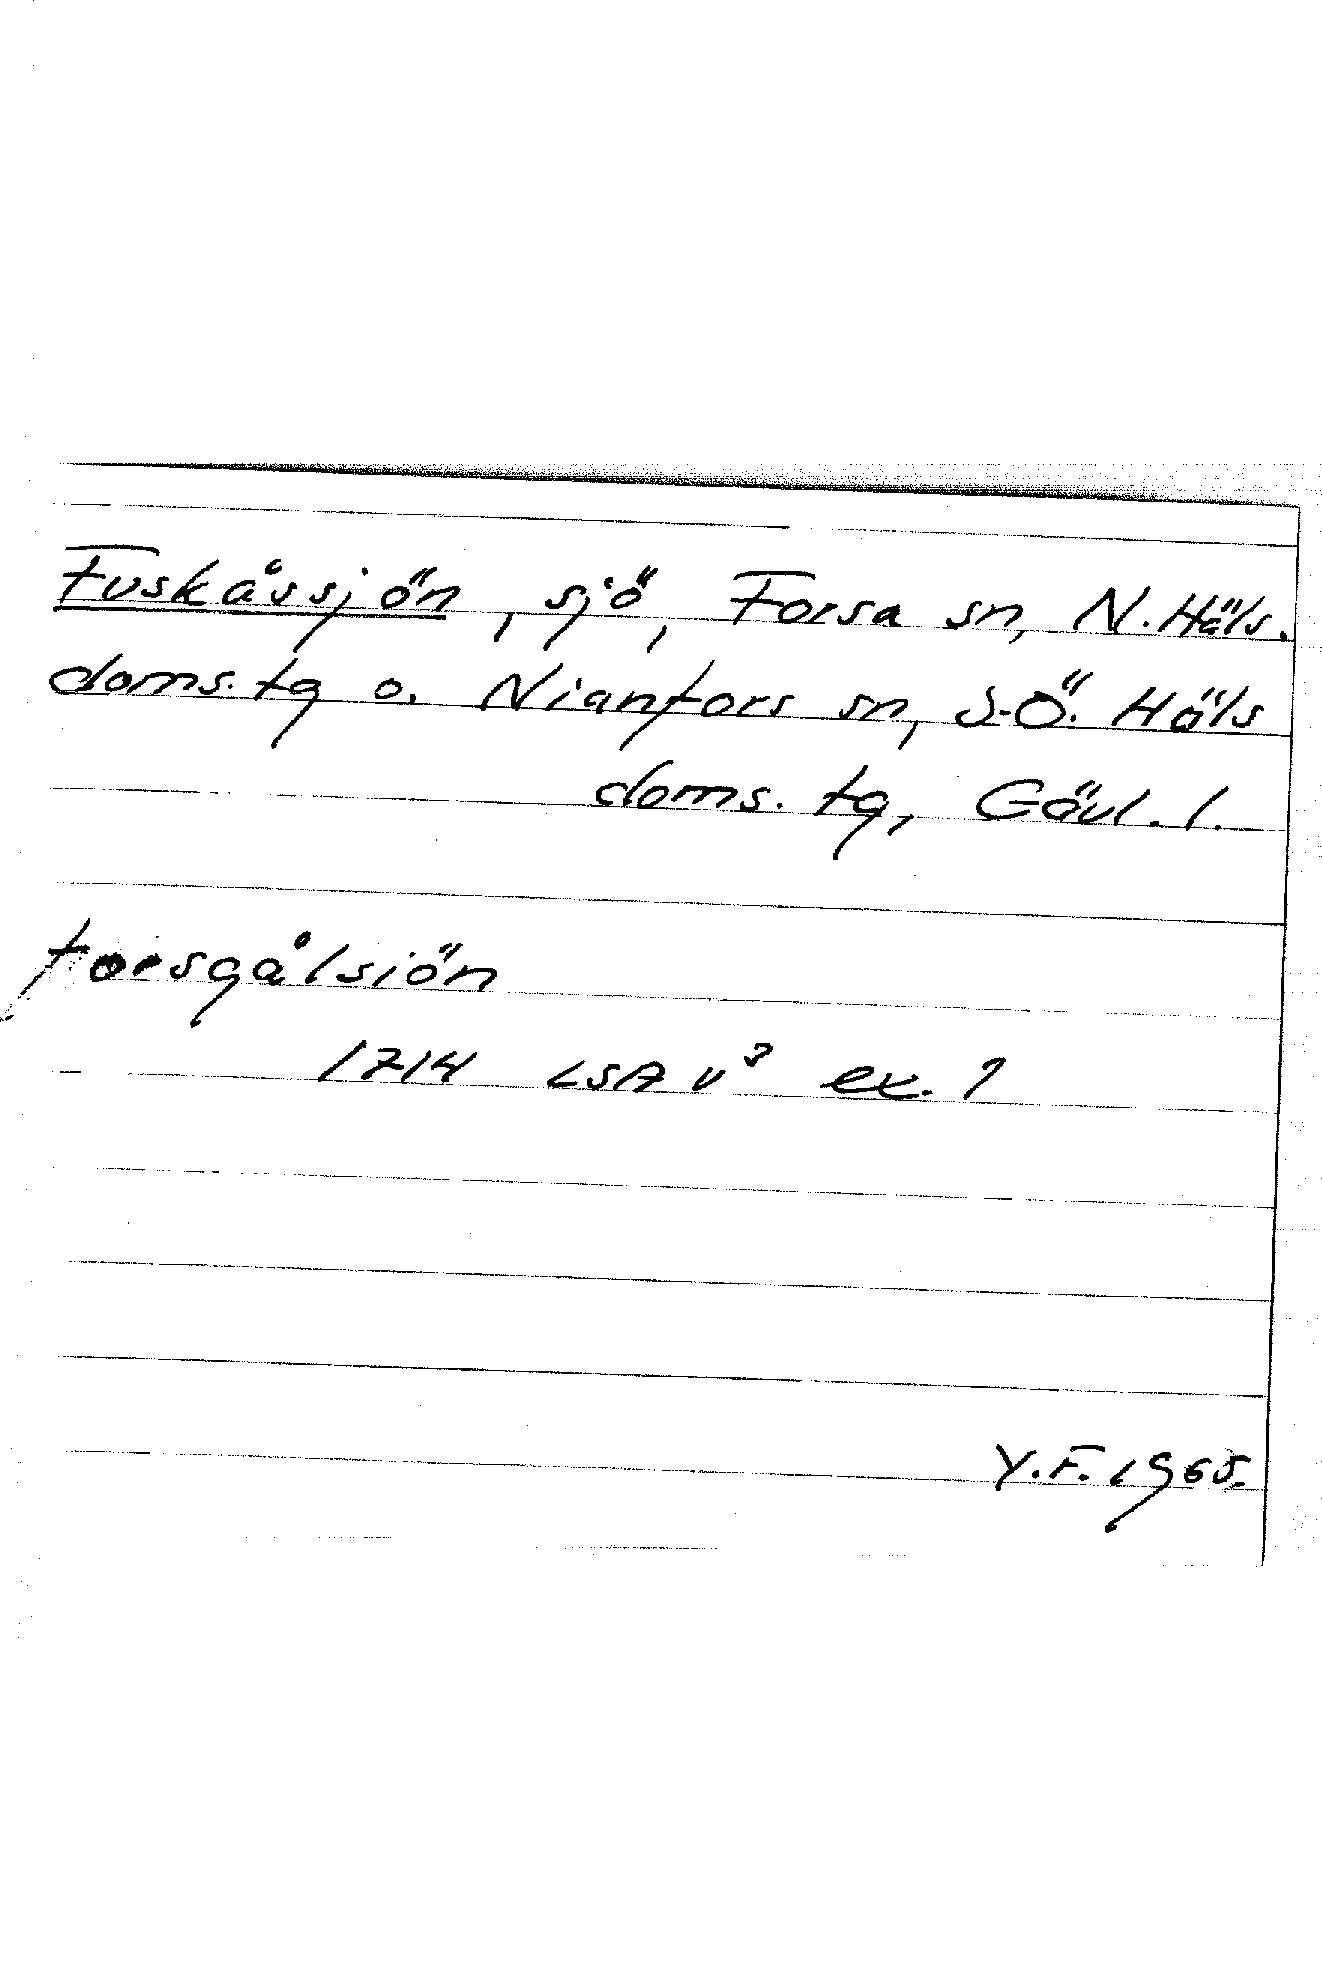 Fuskåssjön, sjö, Forsa sn, N. Häls.
doms. tg o. Nianfors sn, S-Ö. Häls
doms. tg, Gävl. l.
forsgålsiön
1714 LSA v³ ex. 1
Y.F. 1965.